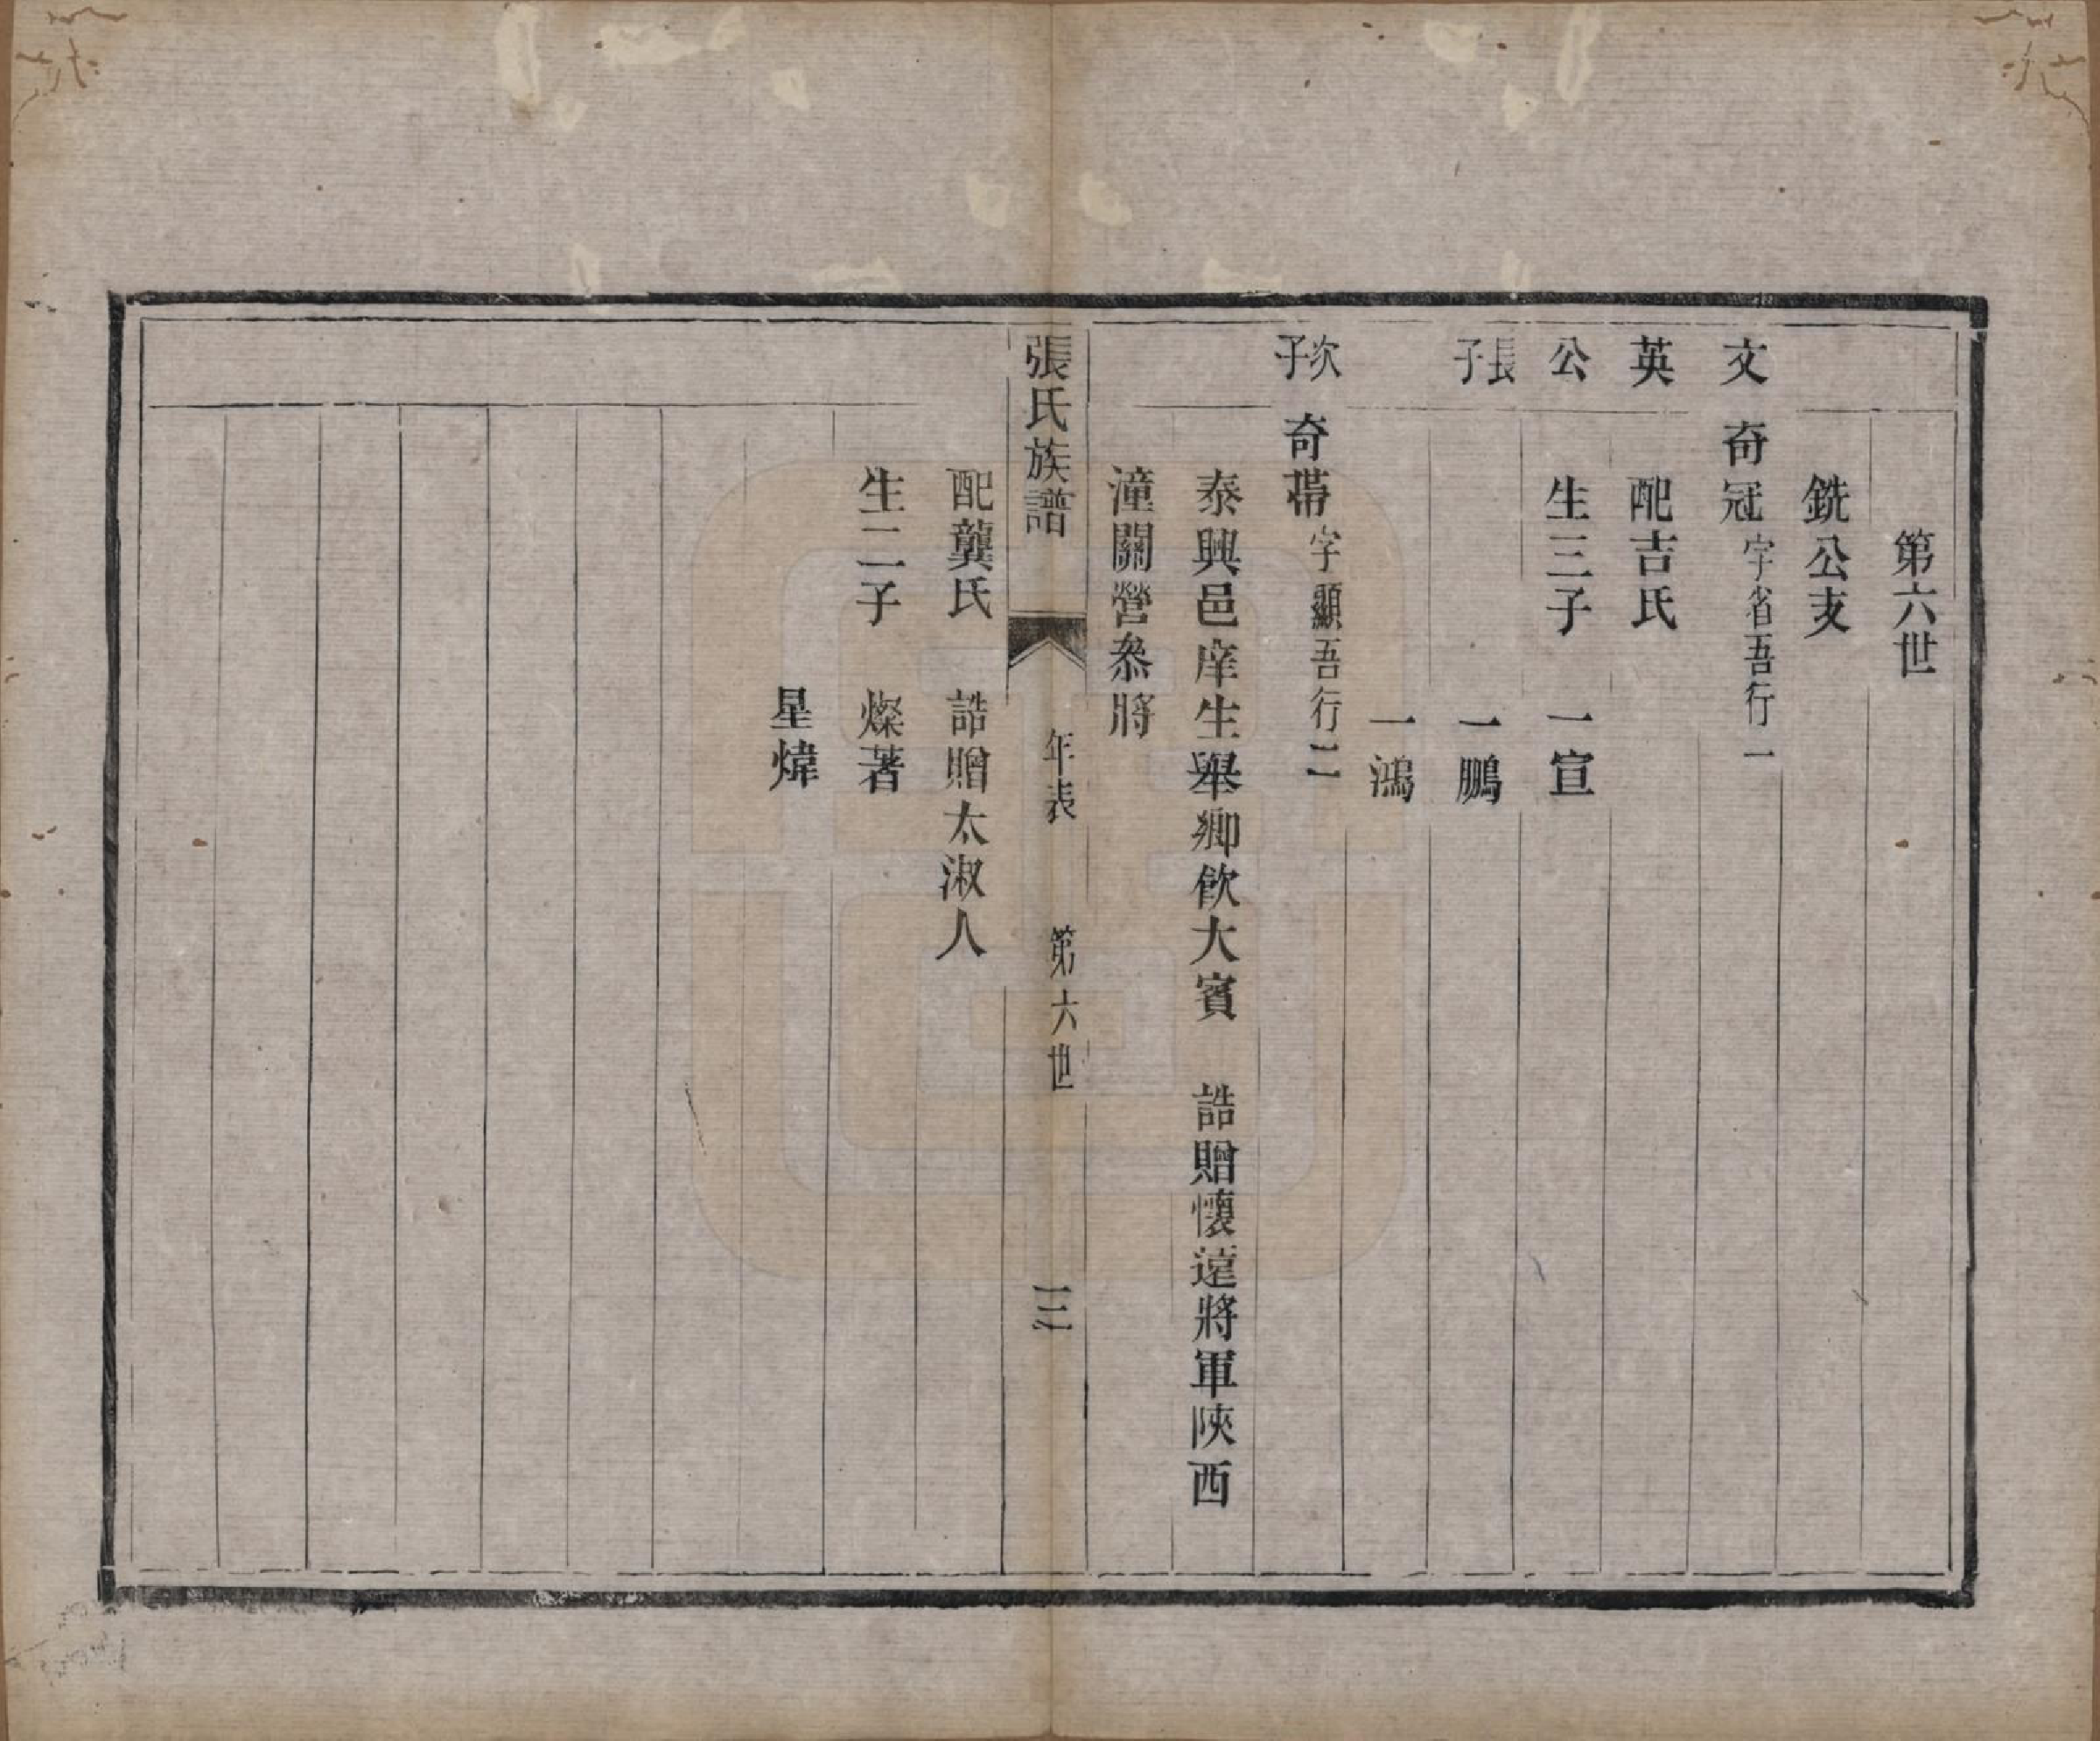 第六世
銑公支
文 奇冠 字省吾行一
英 配吉氏
公 生三子 一宣
長子 一鵬
一鴻
次子 奇𢂇 字顯吾行二
泰興邑庠生舉鄉飲大賓 誥贈懷遠將軍陝西
潼關營叅將
張氏族譜 年表 第六世 三
配龔氏 誥贈太淑人
生二子 燦著
星煒